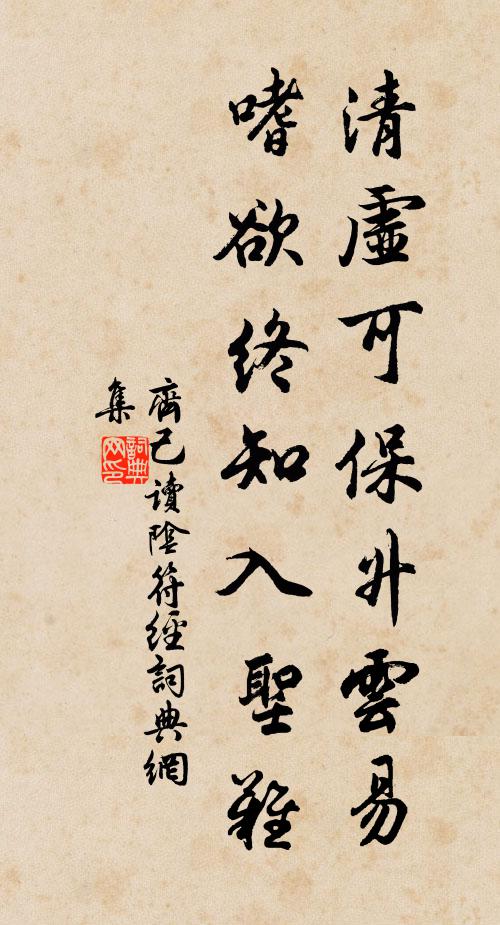 清虛可保升雲易
嗜欲終知入聖難
齊己讀陰符經詞典網
集
詞典网印